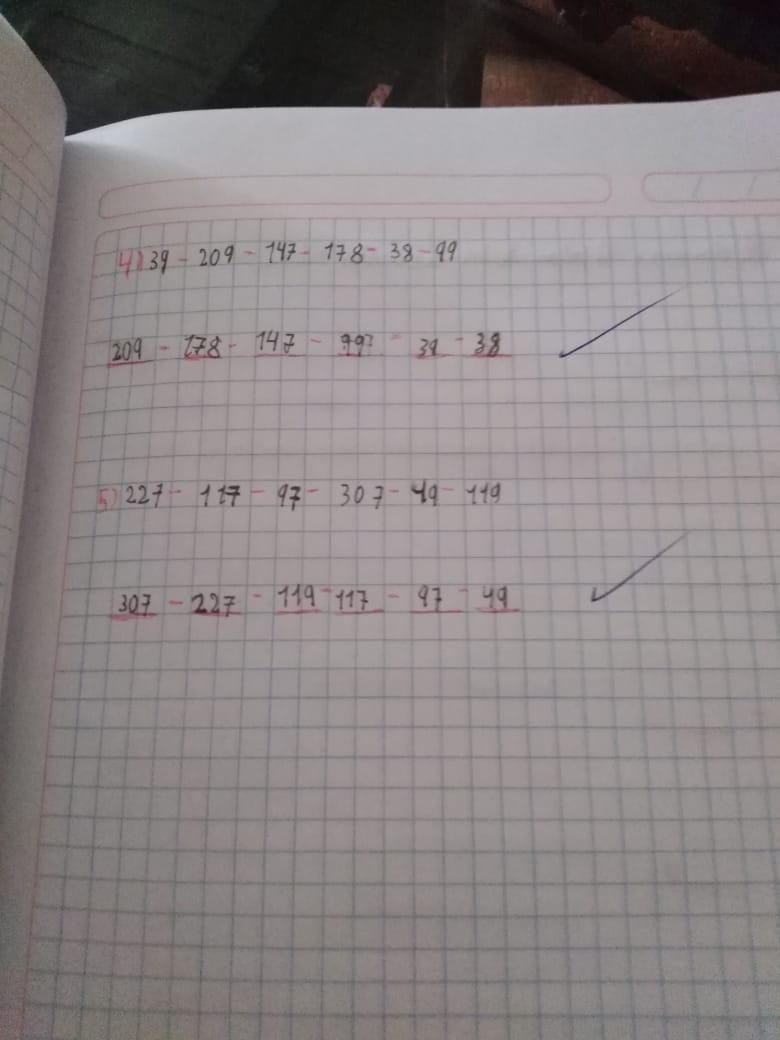 4) 39 - 209 - 147 - 178 - 38 - 99
209 - 178 - 147 - 99 - 39 - 38
5) 227 - 117 - 97 - 307 - 49 - 119
307 - 227 - 119 - 117 - 97 - 49